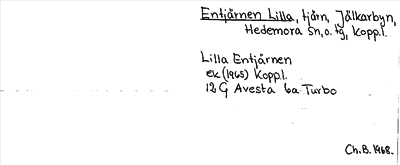 Entjärnen Lilla, tjärn, Jälkarbyn,
Hedemora sn, o. tg, Kopp.l.
Lilla Entjärnen
ek (1965) Kopp.l.
12 G Avesta 6a Turbo
Ch. B. 1968.